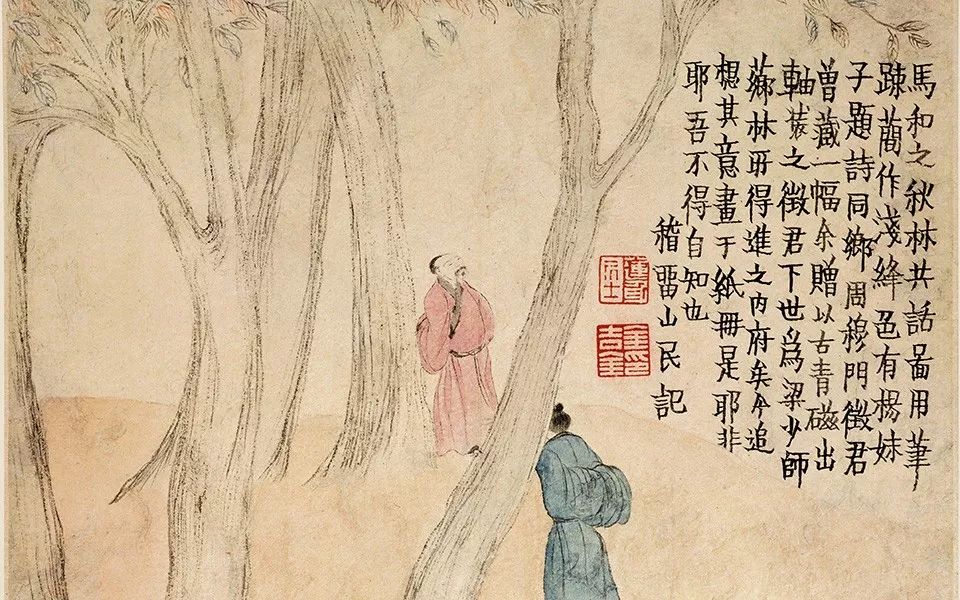 馬和之秋林共話啚用筆
踈蕳作淺絳色有楊妹
子題詩同鄉周穆門徵君
曾藏一幅余贈以古青磁出
軸裝之徵君下世爲梁少師
薌林所得進之内府矣今追
想其意畫于紙冊是耶非
耶吾不得自知也
稽畱山民記
蓮身居士
金吉金印